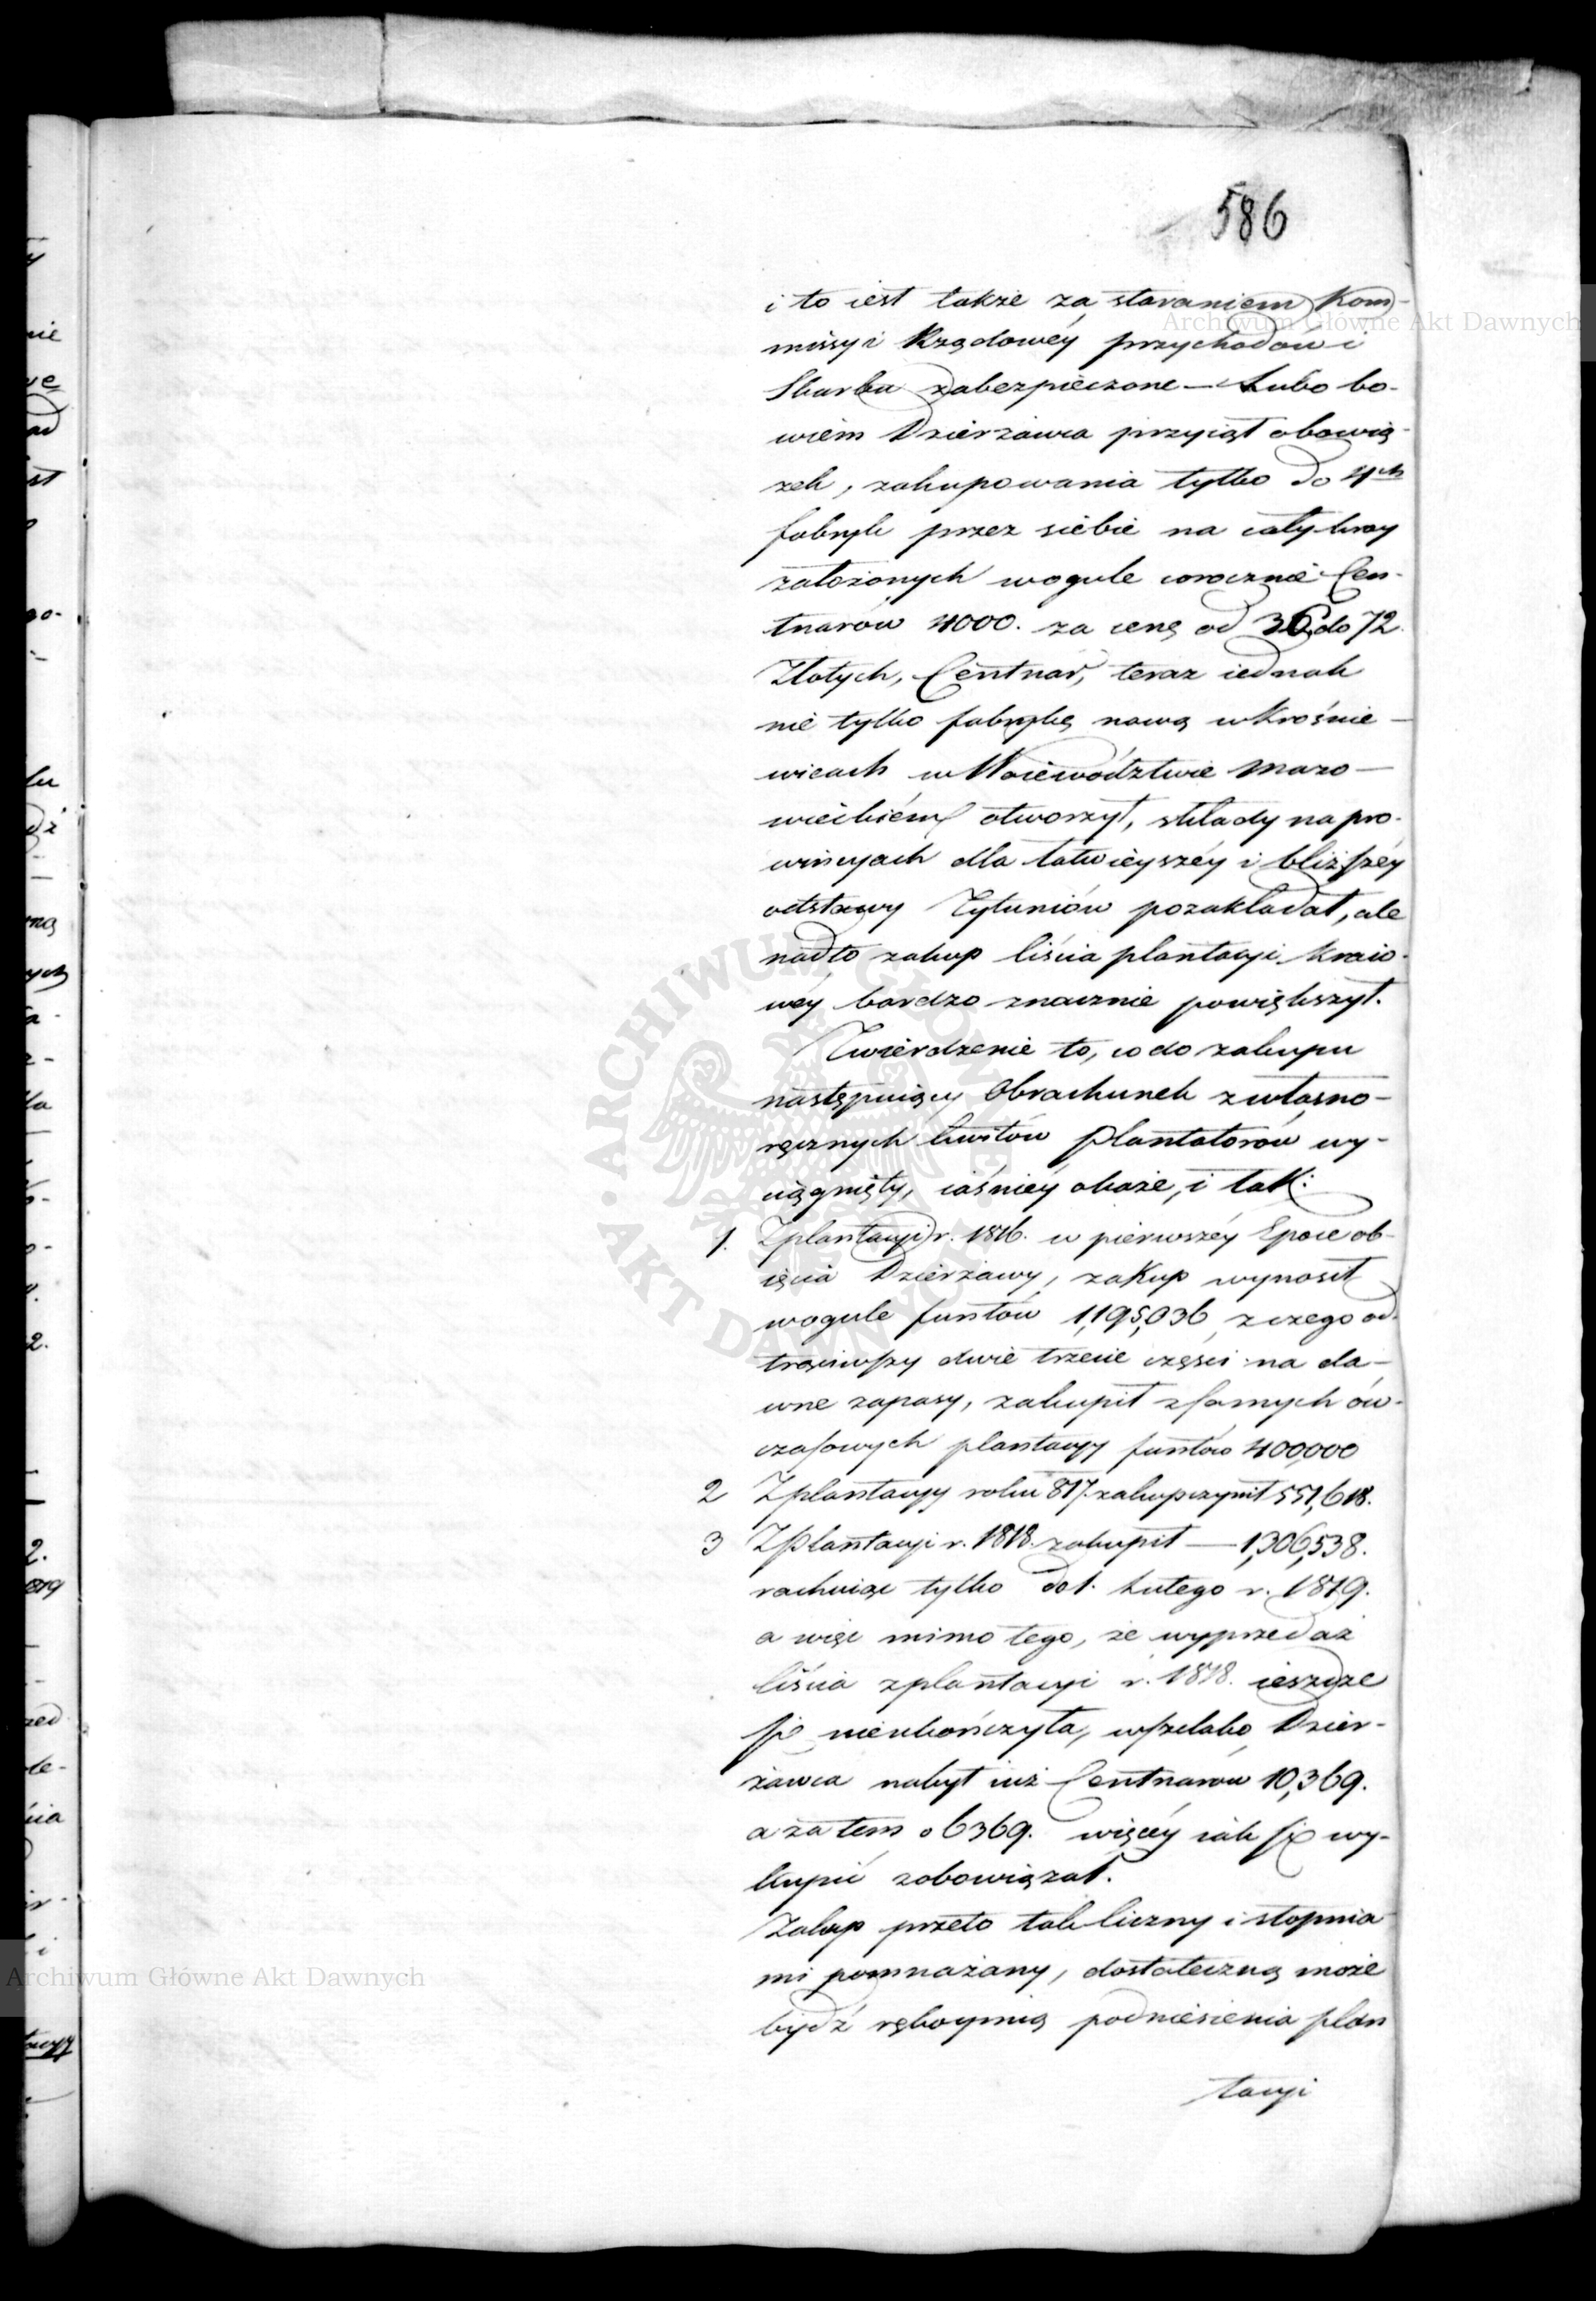 586
i to iest także za staraniem Kom-
missyi Rządowéy przychodów i
Skarbu zabezpieczone — Lubo bo-
wiem Dzierżawca przyiął obowią-
zek, zakupowania tylko do 4ch
fabryk przez siebie na cały kray
założonych wogule corocznie Cen-
tnarów 4000. za cenę od 36 do 72.
Złotych, Centnar, teraz iednak
nie tylko fabrykę nową w Krośnie-
wicach w Woiewództwie Mazo-
wieckiém otworzył, składy na pro-
wincyach dla łatwieyszéy i bliższéy
odstawy Tytuniów pozakładał, ale
nadto zakup liścia plantacyi kraio-
wéy bardzo znacznie powiększył.
Twierdzenie to, co do zakupu
następuiący Obrachunek z własno-
ręcznych kwitów Plantatorów wy-
ciągnięty, iaśniéy okaże, i tak:
1. Z plantacyi r. 1816. w pierwszéy Epoce ob-
ięcia Dzierżawy, zakup wynosił
wogule funtów 1,195,036 z czego od-
trąciwszy dwie trzecie części na da-
wne zapasy, zakupił z samych ów-
czasowych plantacyy funtów 400,000
2 Z plantacyy roku 817. zakup czynił 551,618.
3 Z Plantacyi r. 1818. zakupił — 1,306,538.
rachuiąc tylko do 1. Lutego r. 1819.
a więc mimo tego, że wyprzedaż
liścia z plantacyi r. 1818. ieszcze
się nieukończyła, wszelako Dzier-
żawca nabył iuż Centnarów 10,369.
a zatem o 6369. więcéy iak się wy-
kupić zobowiązał.
Zakup przeto tak liczny i stopnia-
mi pomnażany, dostateczną może
bydź rękoymią podniesienia plan
tacyi
Archiwum Główne Akt Dawnych
Archiwum Główne Akt Dawnych
ARCHIWUM GŁÓWNE AKT DAWNYCH